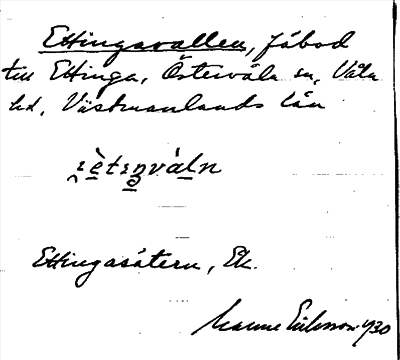 Ettingavallen, fäbod
till Ettinga, Östervåla sn, Våla
hd, Västmanlands län
Ettingasätern, Ek.
Manne Eriksson 1930